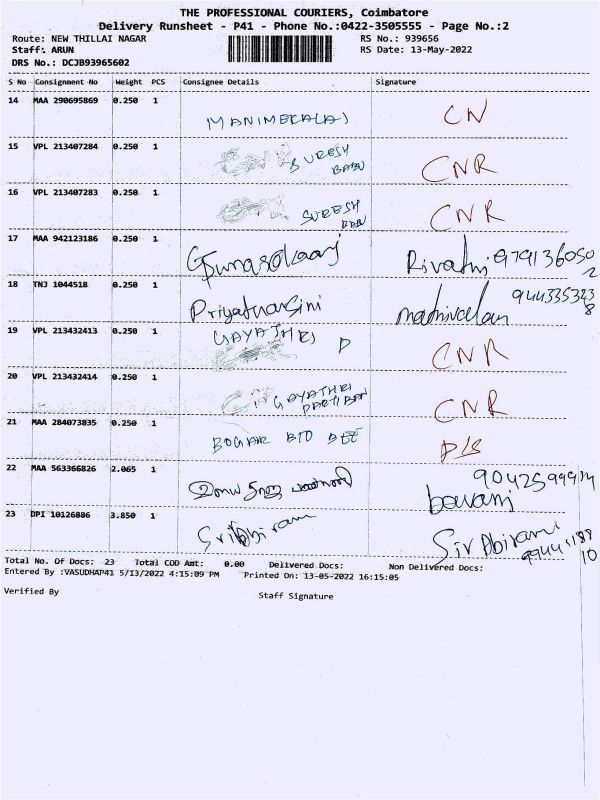 THE PROFESSIONAL COURIERS, Coimbatore
Delivery Runsheet - P41 - Phone No.:0422-3505555 - Page No.:2
Route: NEW THILLAI NAGAR RS No.: 939656
Staff: ARUN RS Date: 13-May-2022
DRS No.: DCJB93965602
S No Consignment No Weight PCS Consignee Details Signature
14 MAA 290695869 0.250 1 CN
15 VPL 213407284 0.250 1 SURESH BABU CNR
16 VPL 213407283 0.250 1 SURESH CNR
17 MAA 942123186 0.250 1
18 TNJ 1044518 0.250 1 Priyatharsini
19 VPL 213432413 0.250 1 GAYATHRI P CNR
20 VPL 213432414 0.250 1 GAYATHRI CNR
21 MAA 284073835 0.250 1 D/S
22 MAA 563366826 2.065 1
23 DPI 10126886 3.850 1
Total No. Of Docs: 23 Total COD Amt: 0.00 Delivered Docs: Non Delivered Docs:
Entered By :VASUDHAP41 5/13/2022 4:15:09 PM Printed On: 13-05-2022 16:15:05
Verified By
Staff Signature